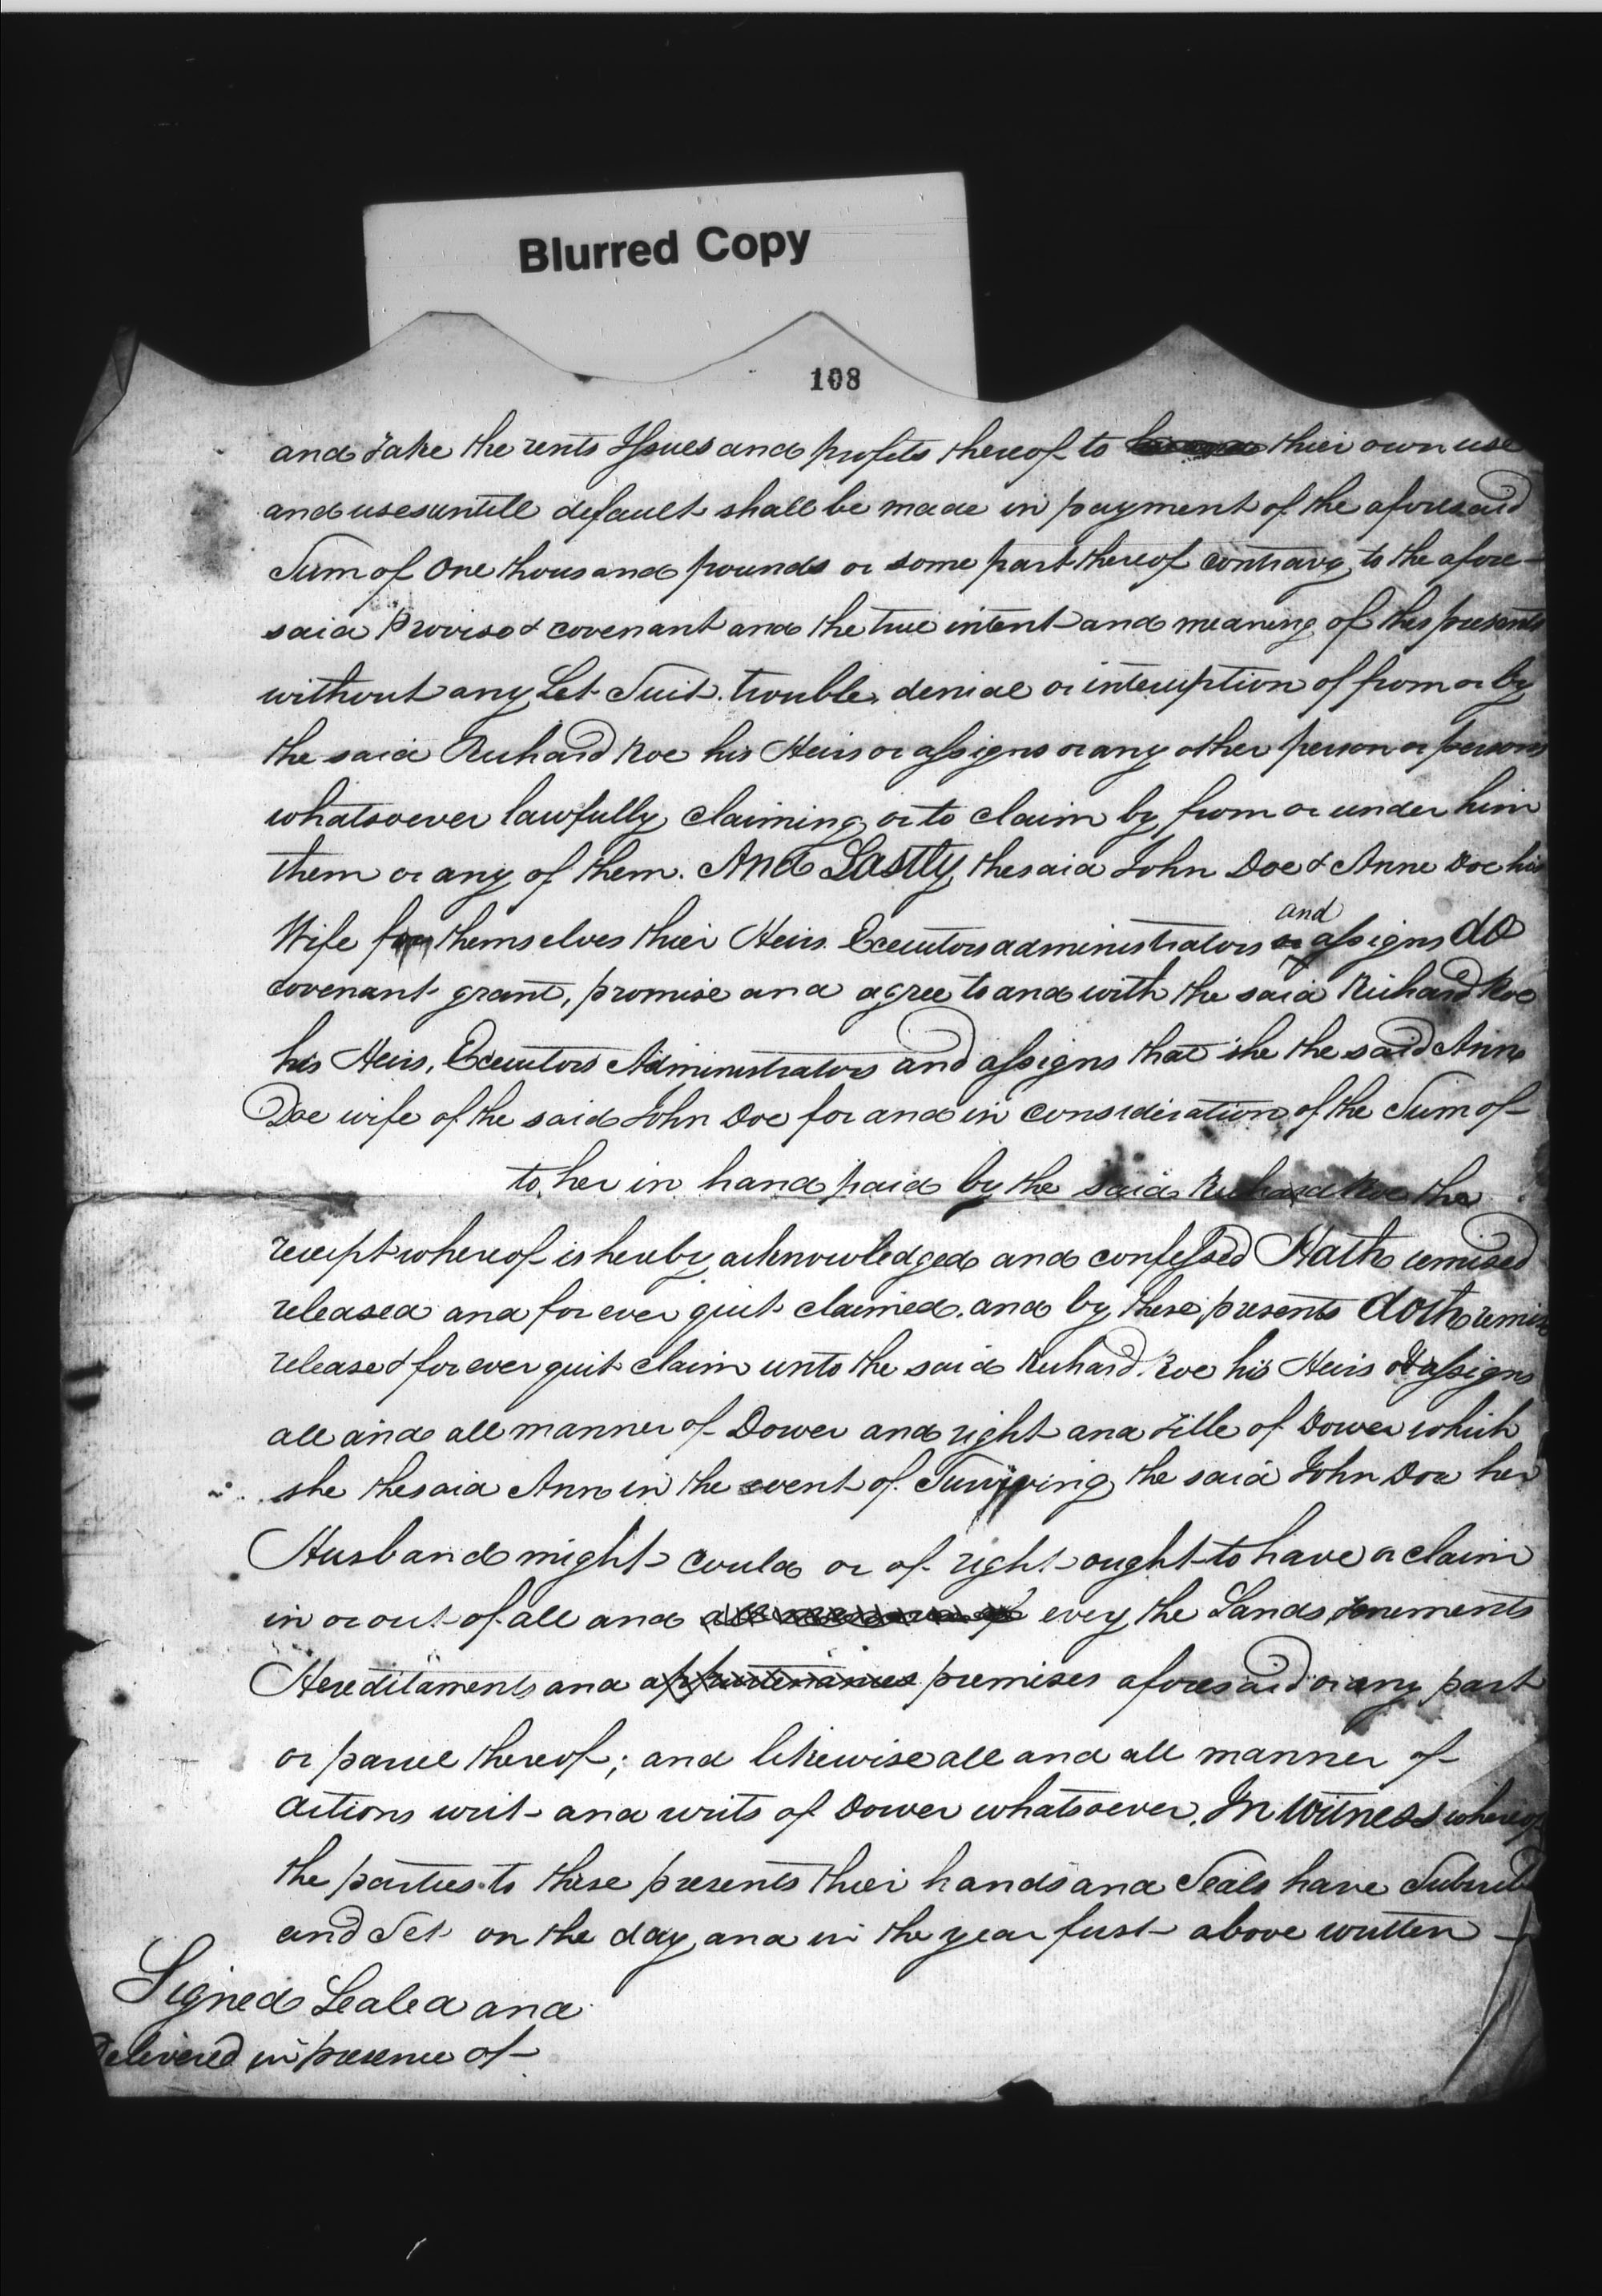 Blurred Copy
108
and take the rents Issues and profits thereof to thier own use
and uses untill default shall be made in payment of the aforesaid
Sum of One thousand pounds or some part thereof contrary to the afore-
said Proviso & covenant and the true intent and meaning of this presents
without any Let Suit trouble denial or interuption of from or by
the said Richard Roe his Heirs or assigns or any other person or persons
whatsoever lawfully claiming or to claim by from or under him
them or any of them. And Lastly the said John Doe & Anne Doe his
and
Wife for themselves thier Heirs Executors administrators or assigns do
covenant grant, promise and agree to and with the said Richard Roe
his Heirs, Executors Administrators and assigns that she the said Ann
Doe wife of the said John Doe for and in consideration of the Sum of
to her in hand paid by the said Richard Roe the
receipt whereof is hereby acknowledged and confessed Hath remised
released and for ever quit claimed and by these presents doth remise
release & for ever quit claim unto the said Richard Roe his Heirs & assigns
all and all manner of Dower and right and title of Dower which
she the said Ann in the event of Surviving the said John Doe her
Husband might could or of right ought to have or claim
in or out of all and every the Lands tenements
Hereditaments and appurtenances premises aforesaid or any part
or parcel thereof; and likewise all and all manner of
actions writ and writs of Dower whatsoever. In Witness whereof
the parties to these presents thier hands and Seals have
and Set on the day and in the year first above written
Signed Sealed and
Delivered in presence of